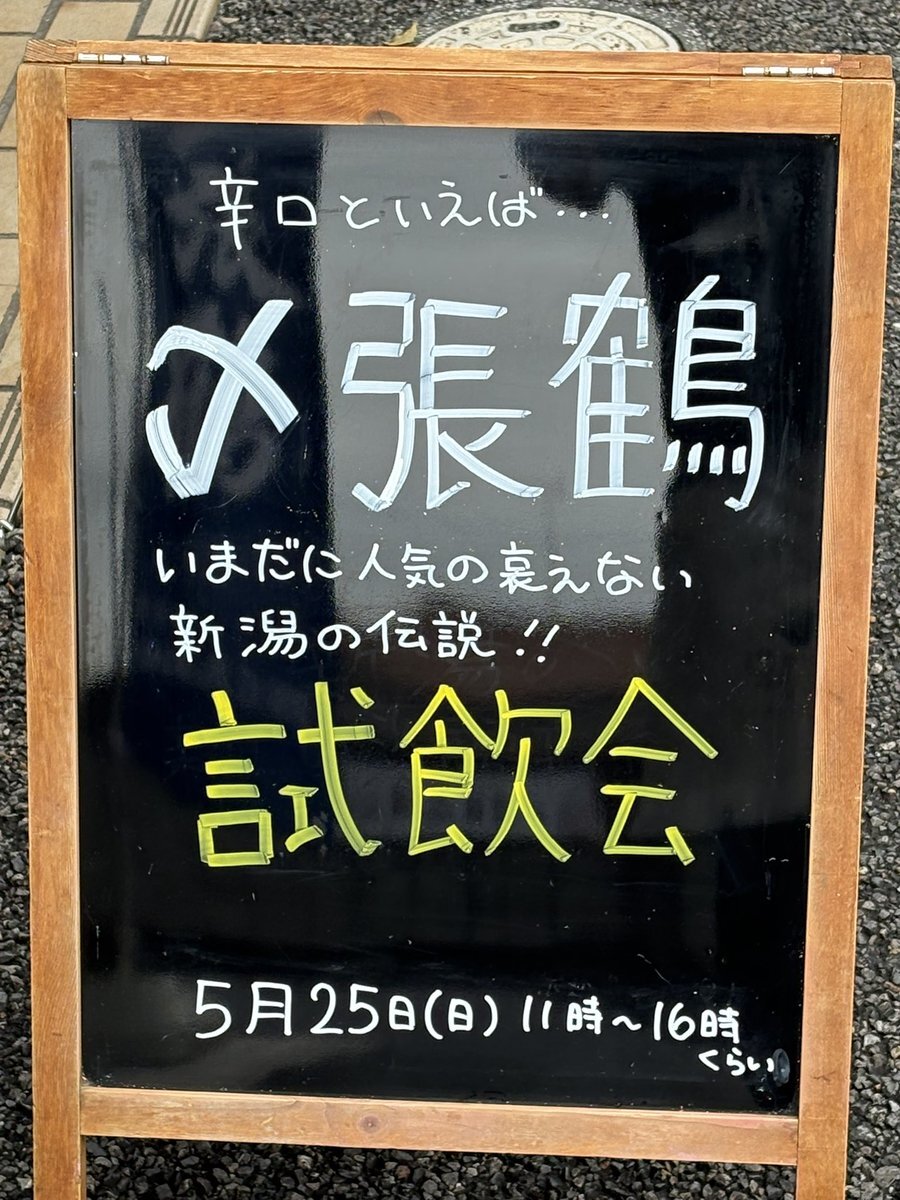 辛口といえば…
〆張鶴
いまだに人気の衰えない
新潟の伝説!!
試飲会
5月25日(日) 11時~16時
くらい